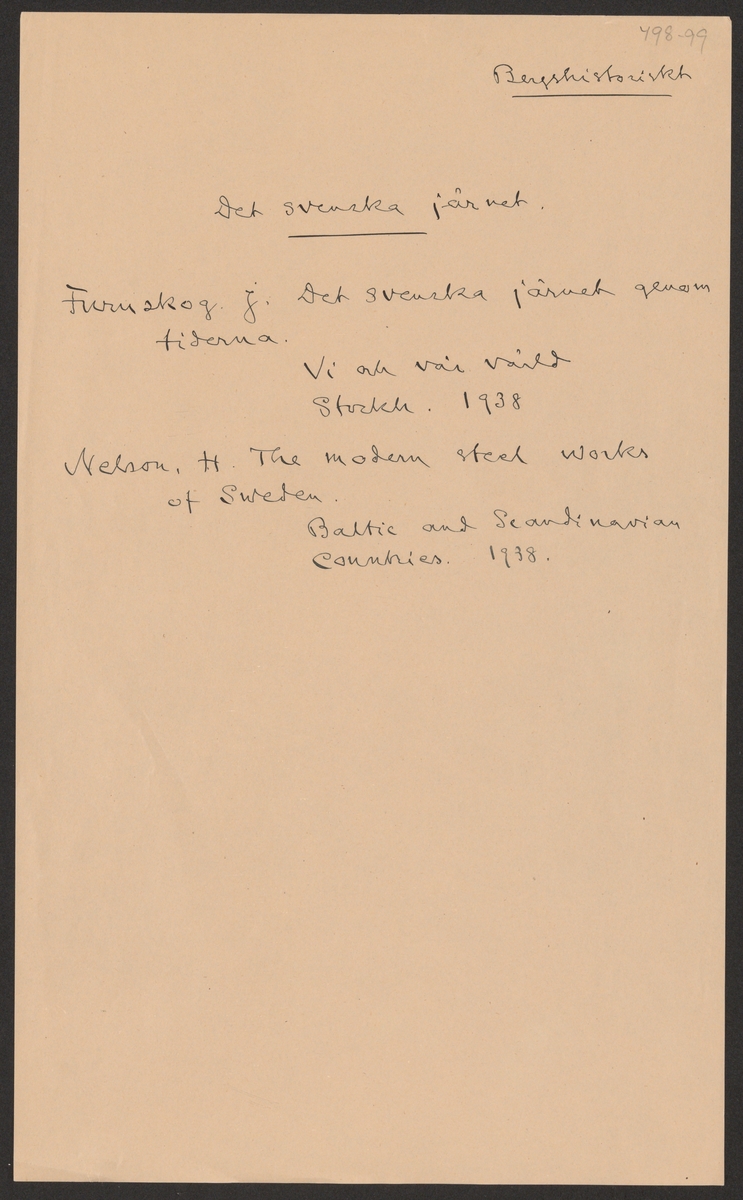 498-99
Bergshistoriskt
Det svenska järnet.
Furuskog. J. Det svenska järnet genom
tiderna.
Vi och vår värld
Stockh. 1938
Nelson, H. The modern steel works
of Sweden.
Baltic and Scandinavian
Countries. 1938.